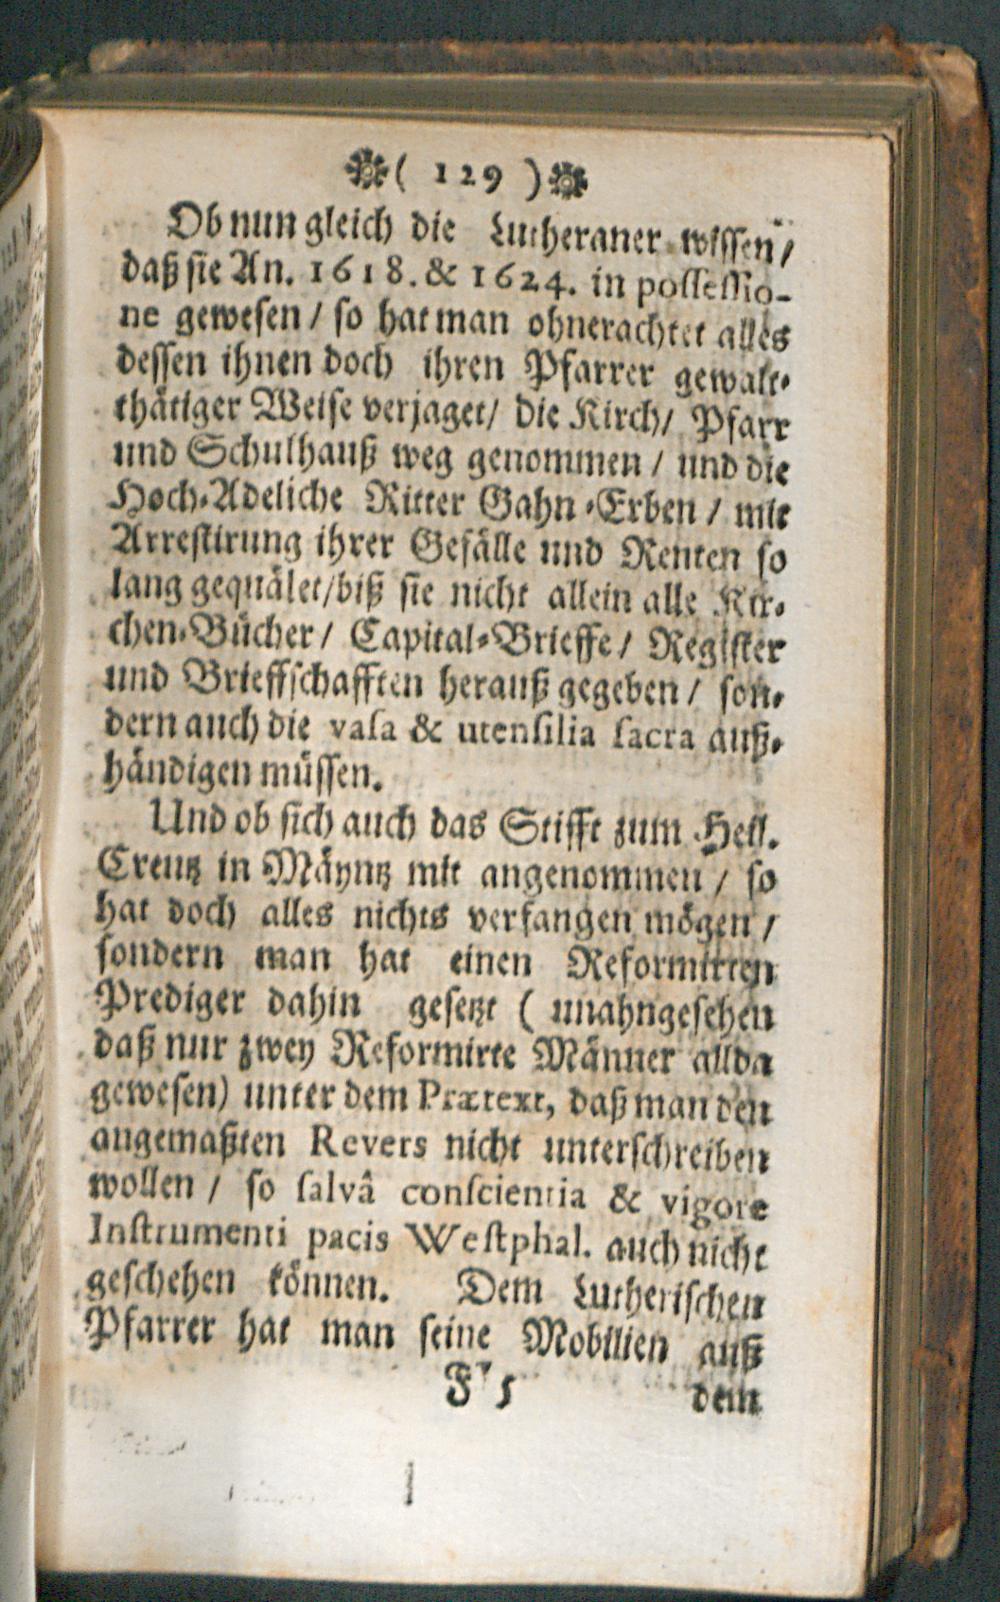 ( 129 )
Ob nun gleich die Lutheraner wissen /
daß sie An. 1618. & 1624. in possessio-
ne gewesen / so hat man ohnerachtet alles
dessen ihnen doch ihren Pfarrer gewalt-
thätiger Weise verjaget / die Kirch / Pfarr
und Schulhauß weg genommen / und die
Hoch-Adeliche Ritter Gahn-Erben / mit
Arrestirung ihrer Gefälle und Renten so
lang gequälet / biß sie nicht allein alle Kir-
chen-Bücher / Capital-Brieffe / Register
und Brieffschafften herauß gegeben / son-
dern auch die vasa & utensilia sacra auß-
händigen müssen.
Und ob sich auch das Stifft zum Heil.
Creutz in Mäyntz mit angenommen / so
hat doch alles nichts verfangen mögen /
sondern man hat einen Reformirten
Prediger dahin gesetzt ( unahngesehen
daß nur zwey Reformirte Männer allda
gewesen) unter dem Prætext, daß man den
angemaßten Revers nicht unterschreiben
wollen / so salvâ conscientia & vigore
Instrumenti pacis Westphal. auch nicht
geschehen können. Dem Lutherischen
Pfarrer hat man seine Mobilien auß
F 5 dem